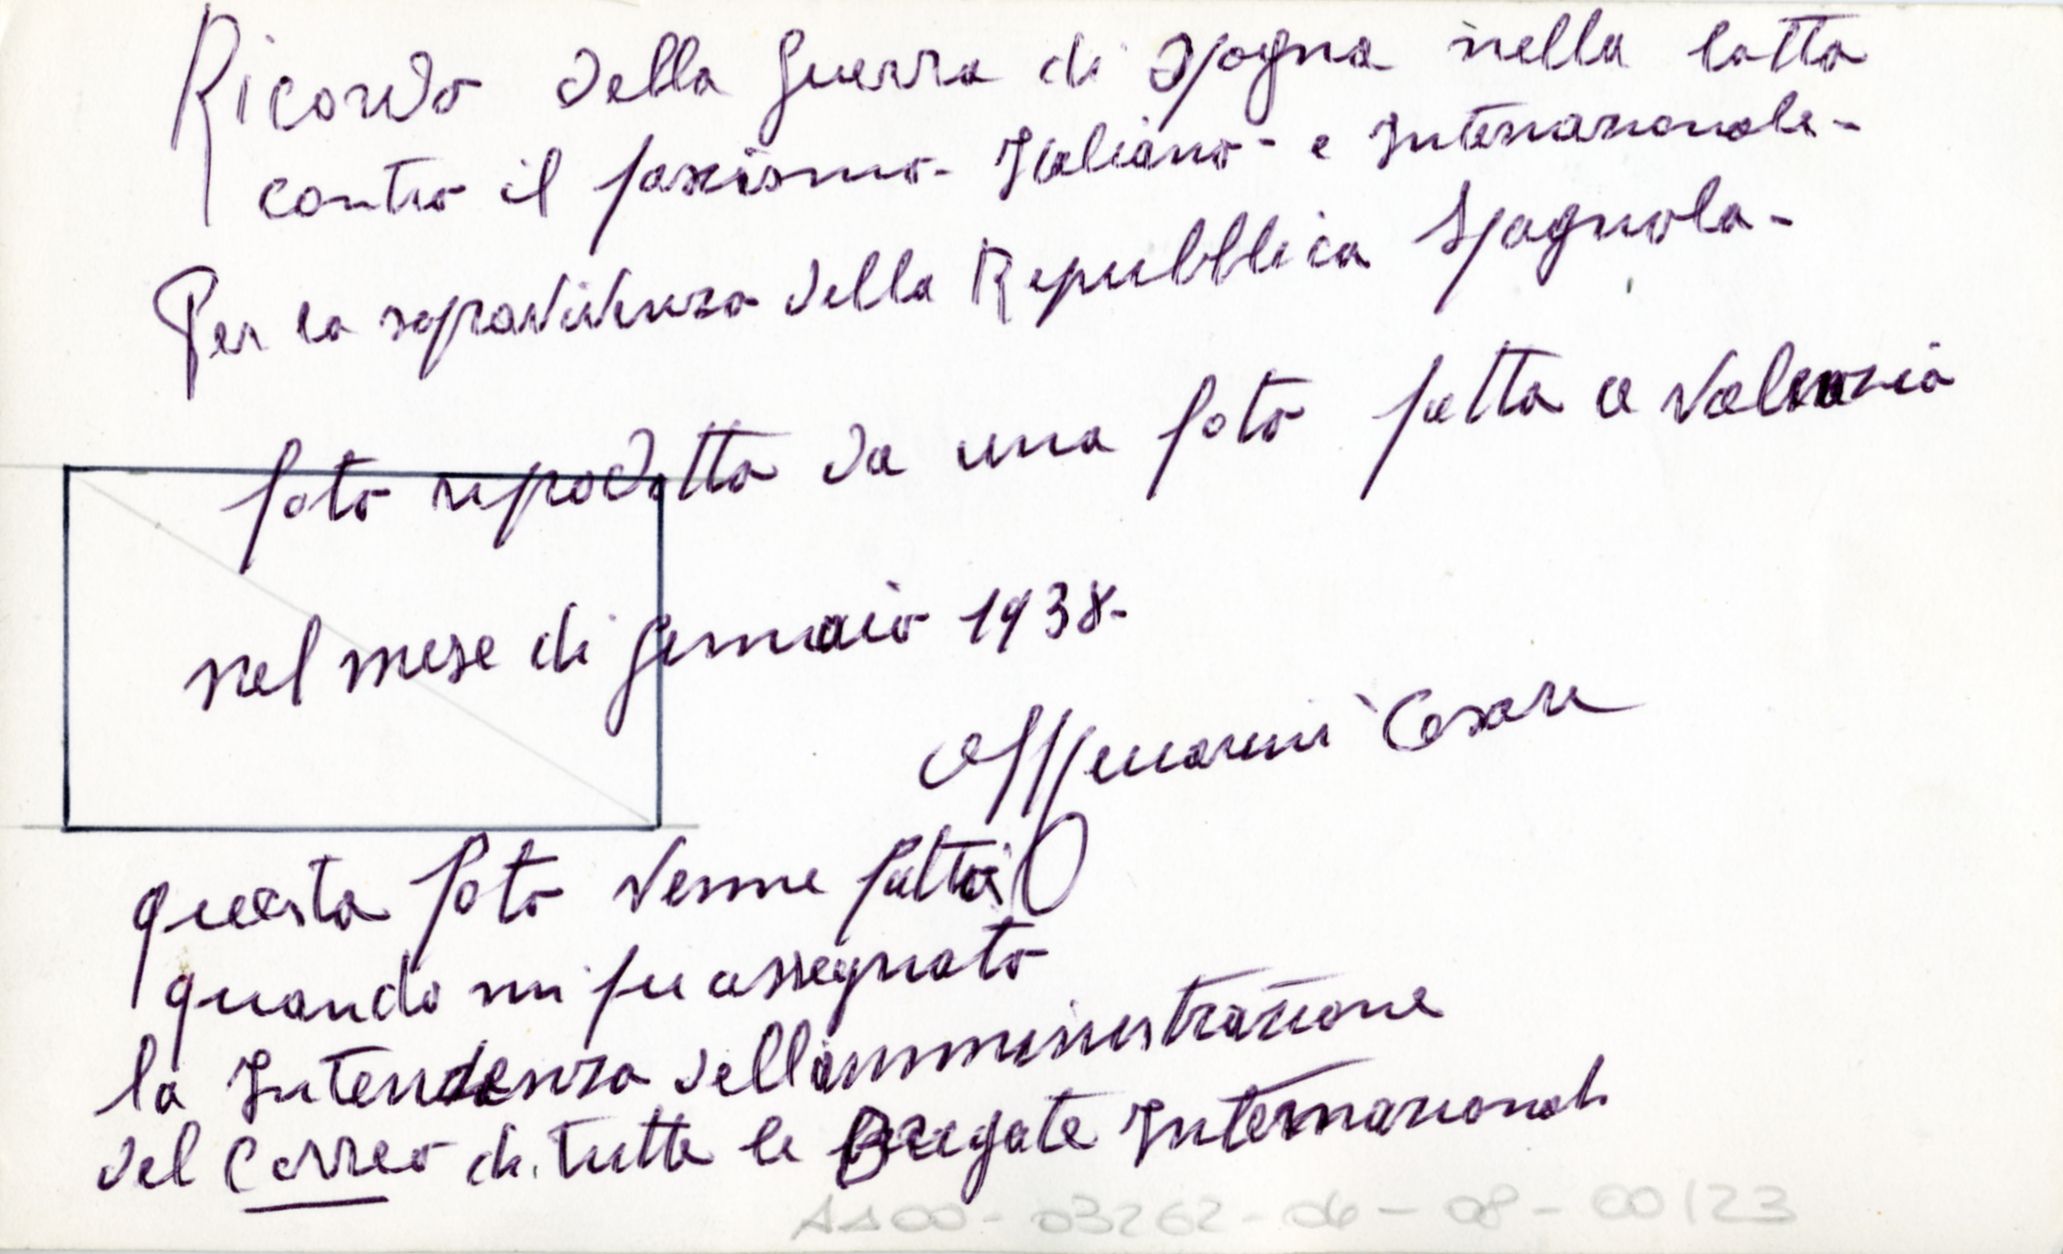 Ricordo della guerra di Spagna nella lotta
contro il fascismo - Italiano - e Internazionale -
Per la sopravivenza della Repubblica Spagnola -
foto repodotta da una foto fatta a Valenzia
nel mese di Gennaio 1938 -
Cesare
questa foto venne fatta
quando mi fu assegnato
la Intendenza dell amministrazione
del Correo di tutte le Brigate Internazionali
AA00 - 03262 - 06 - 08 - 00123